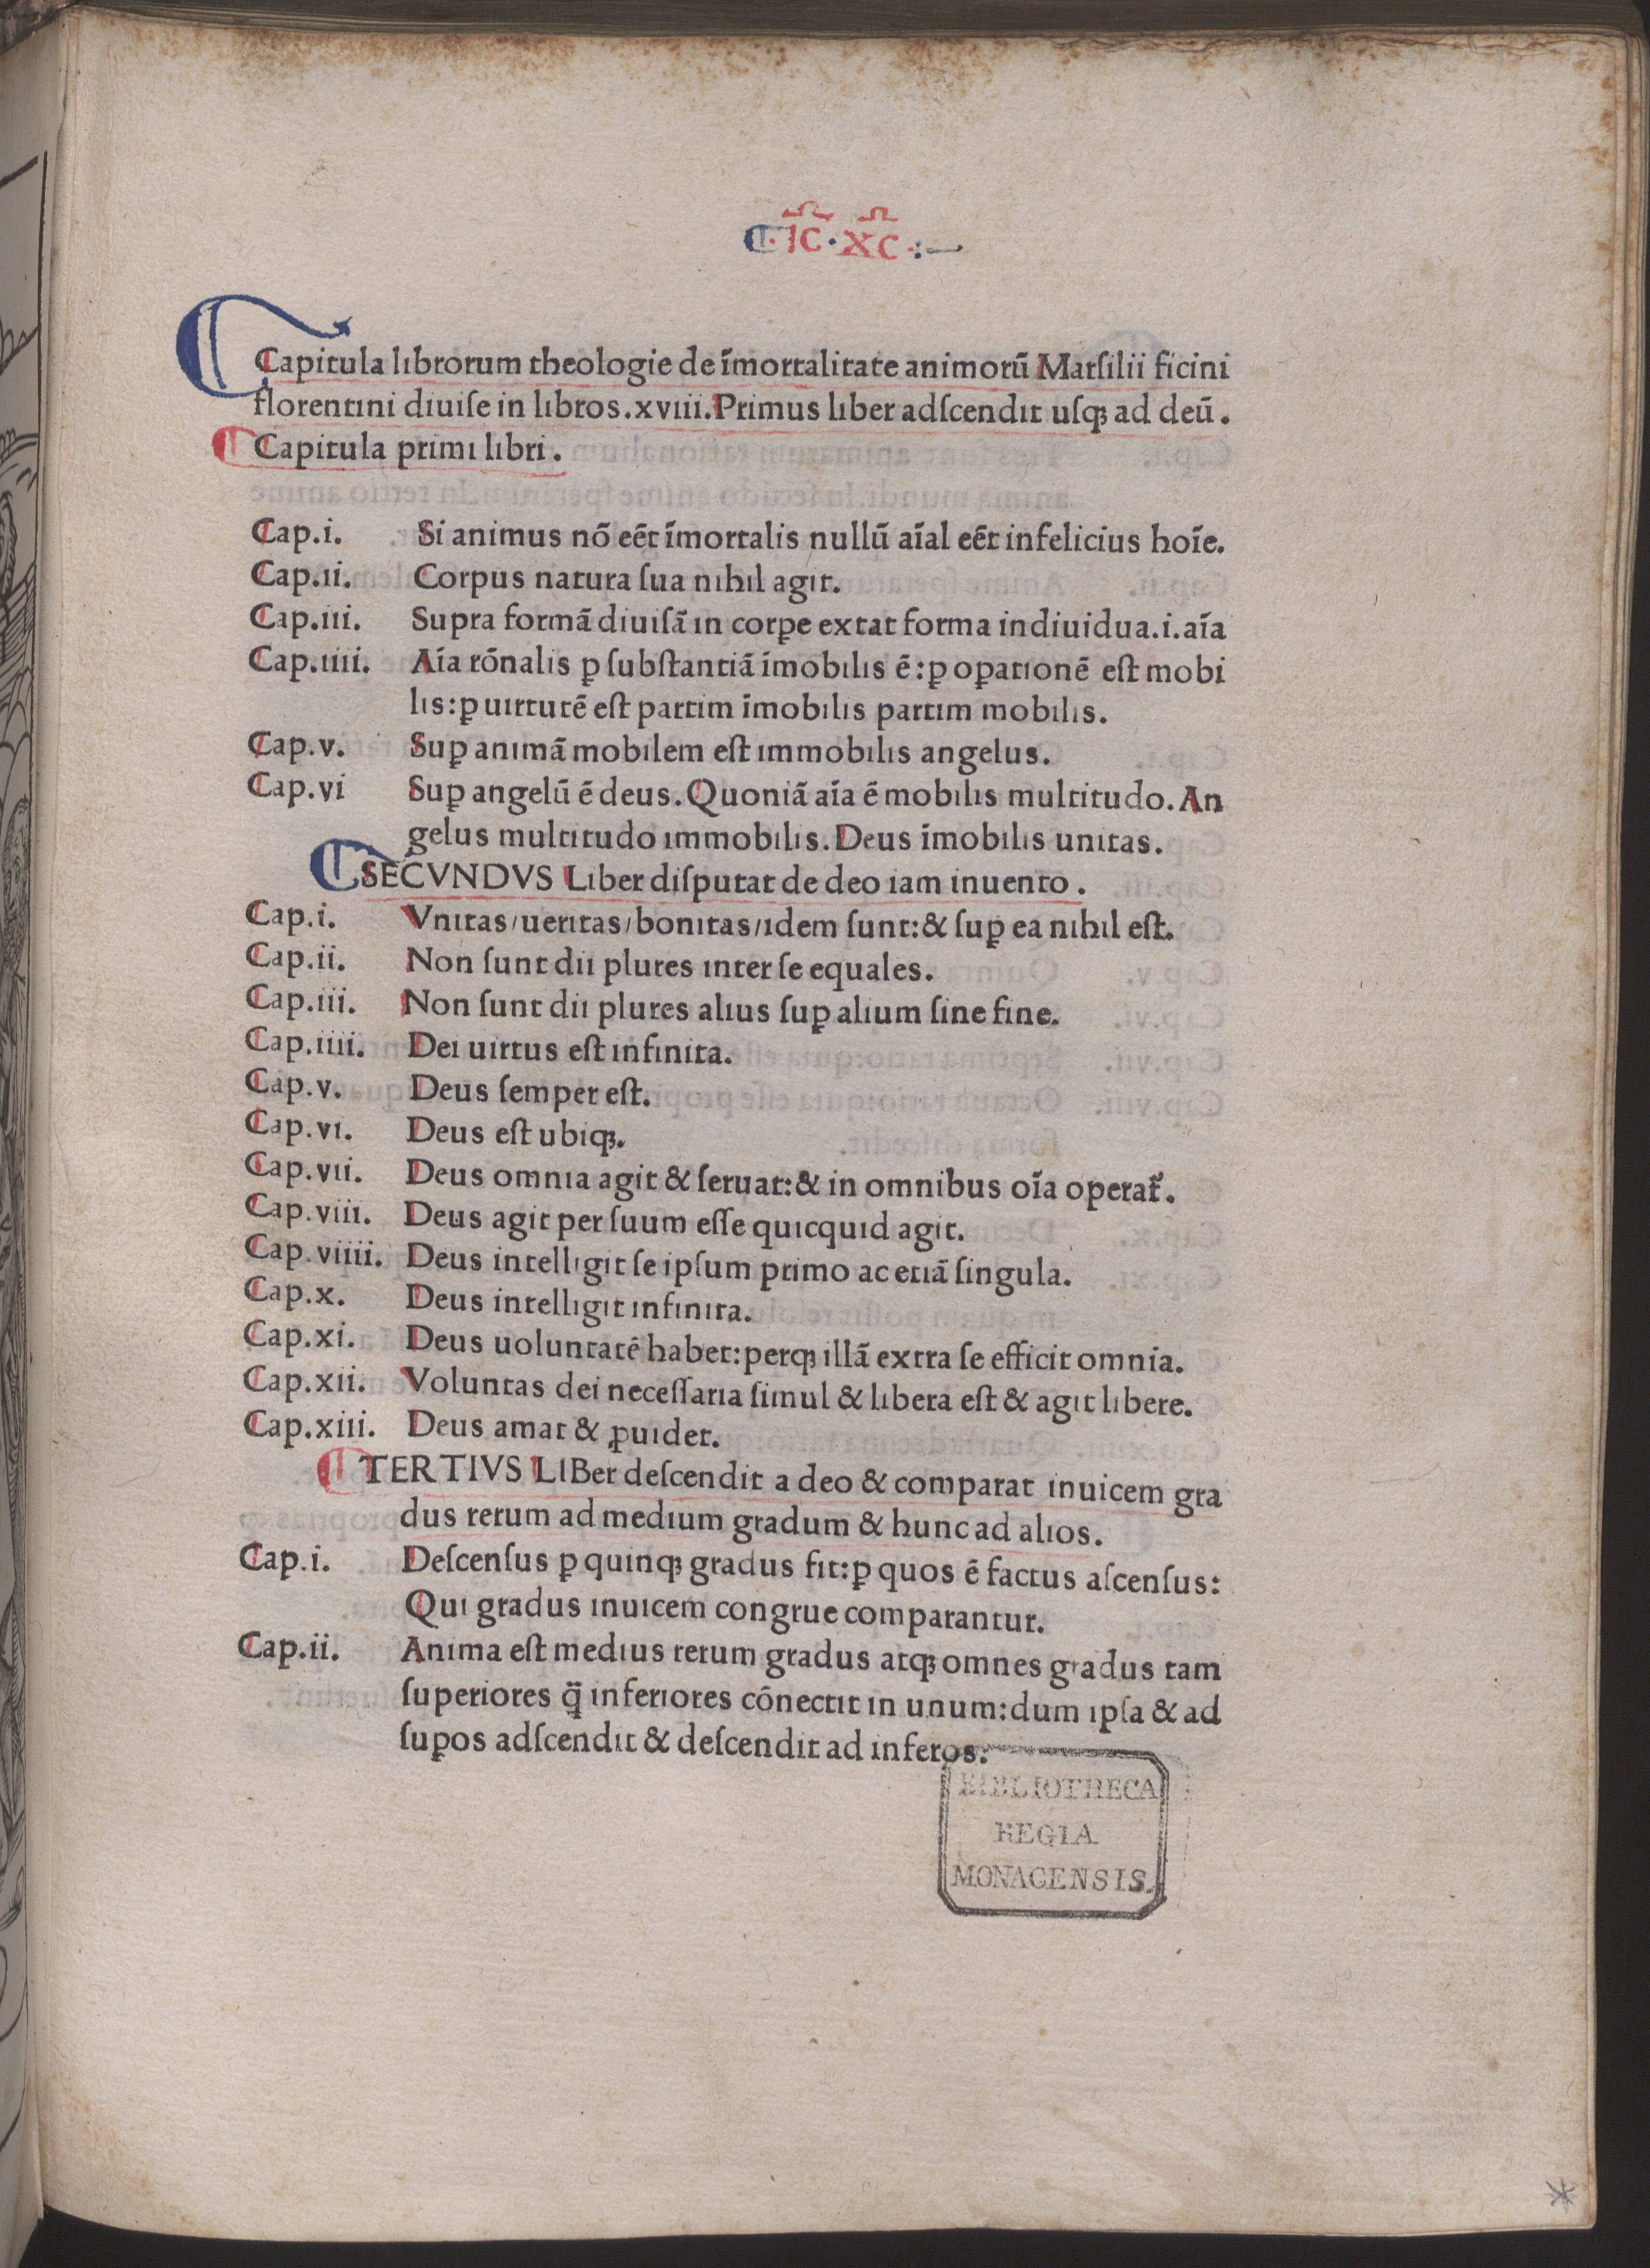 ¶·IC·XC·:—
Capitula librorum theologie de īmortalitate animorū Marſilii ficini
florentini diuiſe in libros.xviii.Primus liber adſcendit uſqꝫ ad deū.
¶Capitula primi libri.
Cap.i. Si animus nō eēt īmortalis nullū aīal eēt infelicius hoīe.
Cap.ii. Corpus natura ſua nihil agit.
Cap.iii. Supra formā diuiſā in corꝑe extat forma indiuidua.i.aīa
Cap.iiii. Aīa rōnalis ꝑ ſubſtantiā īmobilis ē:ꝑ oꝑationē eſt mobi
lis:ꝑ uirtutē eſt partim īmobilis partim mobilis.
Cap.v. Suꝑ animā mobilem eſt immobilis angelus.
Cap.vi Suꝑ angelū ē deus.Quoniā aīa ē mobilis multitudo.An
gelus multitudo immobilis.Deus īmobilis unitas.
¶SECVNDVS Liber diſputat de deo iam inuento.
Cap.i. Vnitas/ueritas/bonitas/idem ſunt:& ſuꝑ ea nihil eſt.
Cap.ii. Non ſunt dii plures inter ſe equales.
Cap.iii. Non ſunt dii plures alius ſuꝑ alium ſine fine.
Cap.iiii. Dei uirtus eſt infinita.
Cap.v. Deus ſemper eſt.
Cap.vi. Deus eſt ubiqꝫ.
Cap.vii. Deus omnia agit & ſeruat:& in omnibus oīa operat᷑.
Cap.viii. Deus agit per ſuum eſſe quicquid agit.
Cap.viiii. Deus intelligit ſe ipſum primo ac etiā ſingula.
Cap.x. Deus intelligit infinita.
Cap.xi. Deus uoluntatē habet:perqꝫ illā extra ſe efficit omnia.
Cap.xii. Voluntas dei neceſſaria ſimul & libera eſt & agit libere.
Cap.xiii. Deus amat & ꝓuidet.
¶TERTIVS LIBer deſcendit a deo & comparat inuicem gra
dus rerum ad medium gradum & hunc ad alios.
Cap.i. Deſcenſus ꝑ quinqꝫ gradus fit:ꝑ quos ē factus aſcenſus:
Qui gradus inuicem congrue comparantur.
Cap.ii. Anima eſt medius rerum gradus atqꝫ omnes gradus tam
ſuperiores q̄ inferiores cōnectit in unum:dum ipſa & ad
ſuꝑos adſcendit & deſcendit ad inferos.
BIBLIOTHECA
REGIA
MONACENSIS.